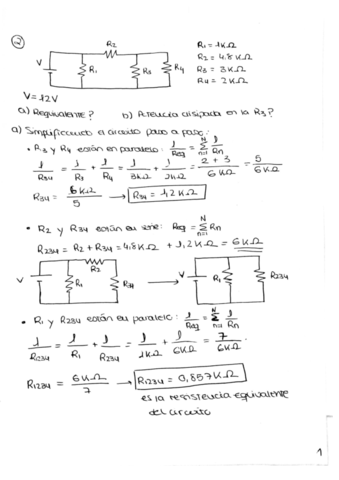 ②
R₂
R₁ = 1KΩ
V
R₁
R₃
R₄
R₂ = 4.8KΩ
R₃ = 3KΩ
R₄ = 2KΩ
V = 12V
a) Requivalente? b) Potencia disipada en la R₃?
a) Simplificando el circuito paso a paso:
• R₃ y R₄ están en paralelo: 1/Req = Σ(n=1→N) 1/Rn
1/R34 = 1/R3 + 1/R4 = 1/3KΩ + 1/2KΩ = 2+3/6KΩ = 5/6KΩ
R34 = 6KΩ/5 → R34 = 1,2KΩ
• R₂ y R34 están en serie: Req = Σ(n=1→N) Rn
R234 = R2 + R34 = 4.8KΩ + 1,2KΩ = 6KΩ
V R₁ R₂ R34 → V R₁ R234
• R₁ y R234 están en paralelo: 1/Req = Σ(n=1→N) 1/Rn
1/R234 = 1/R1 + 1/R234 = 1/1KΩ + 1/6KΩ = 7/6KΩ
R1234 = 6KΩ/7 → R1234 = 0,857KΩ
es la resistencia equivalente
del circuito
1